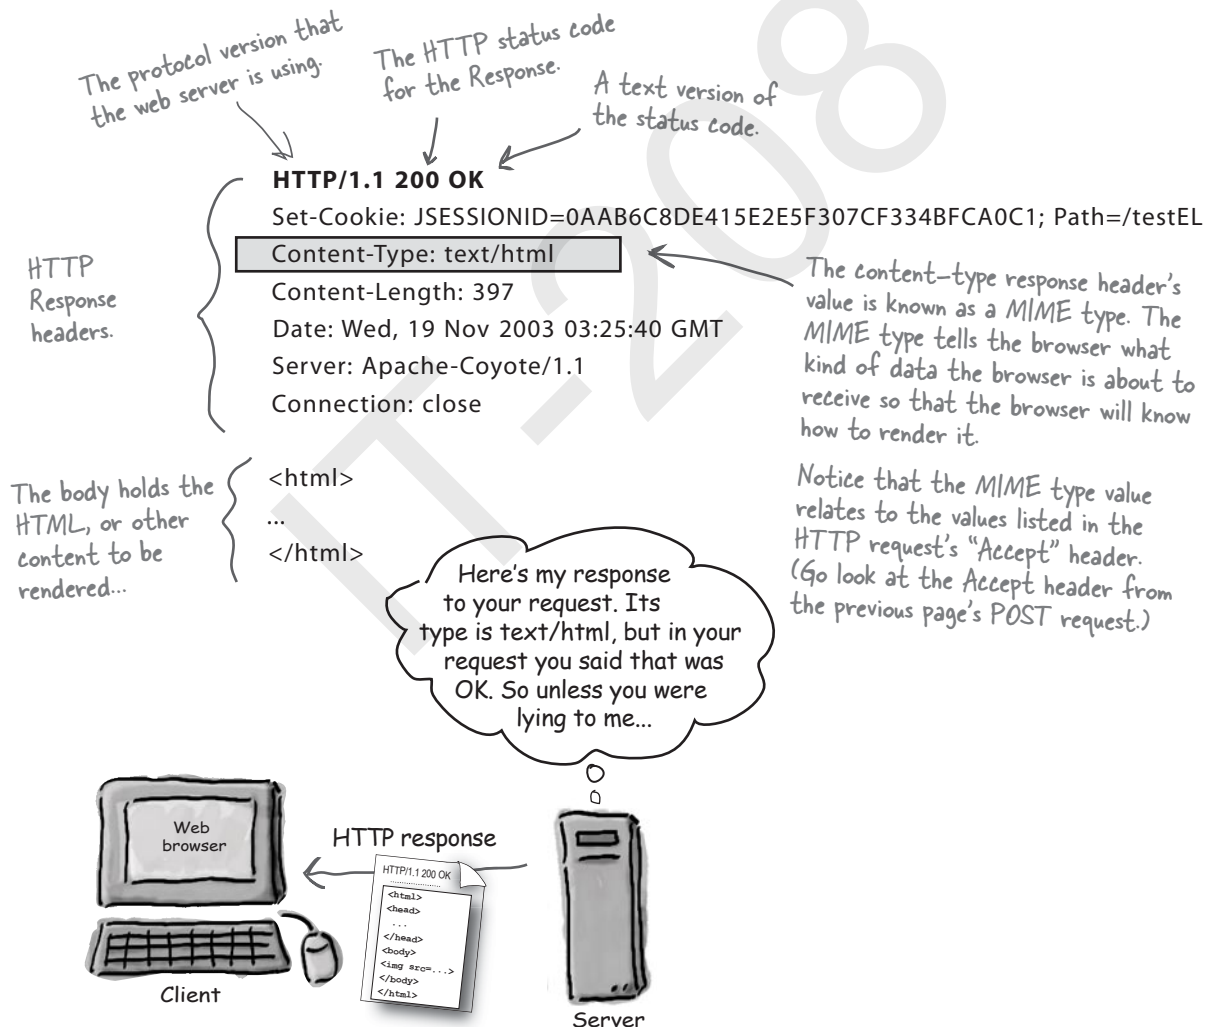 The protocol version that
the web server is using.
The HTTP status code
for the Response.
A text version of
the status code.
HTTP/1.1 200 OK
Set-Cookie: JSESSIONID=0AAB6C8DE415E2E5F307CF334BFCA0C1; Path=/testEL
Content-Type: text/html
Content-Length: 397
Date: Wed, 19 Nov 2003 03:25:40 GMT
Server: Apache-Coyote/1.1
Connection: close
HTTP
Response
headers.
The content-type response header's
value is known as a MIME type. The
MIME type tells the browser what
kind of data the browser is about to
receive so that the browser will know
how to render it.
Notice that the MIME type value
relates to the values listed in the
HTTP request's “Accept” header.
(Go look at the Accept header from
the previous page's POST request.)
The body holds the
HTML, or other
content to be
rendered...
<html>
...
</html>
Here's my response
to your request. Its
type is text/html, but in your
request you said that was
OK. So unless you were
lying to me...
Web
browser
HTTP response
HTTP/1.1 200 OK
.....................
<html>
<head>
...
</head>
<body>
<img src=...>
</body>
</html>
Client
Server
IT-208